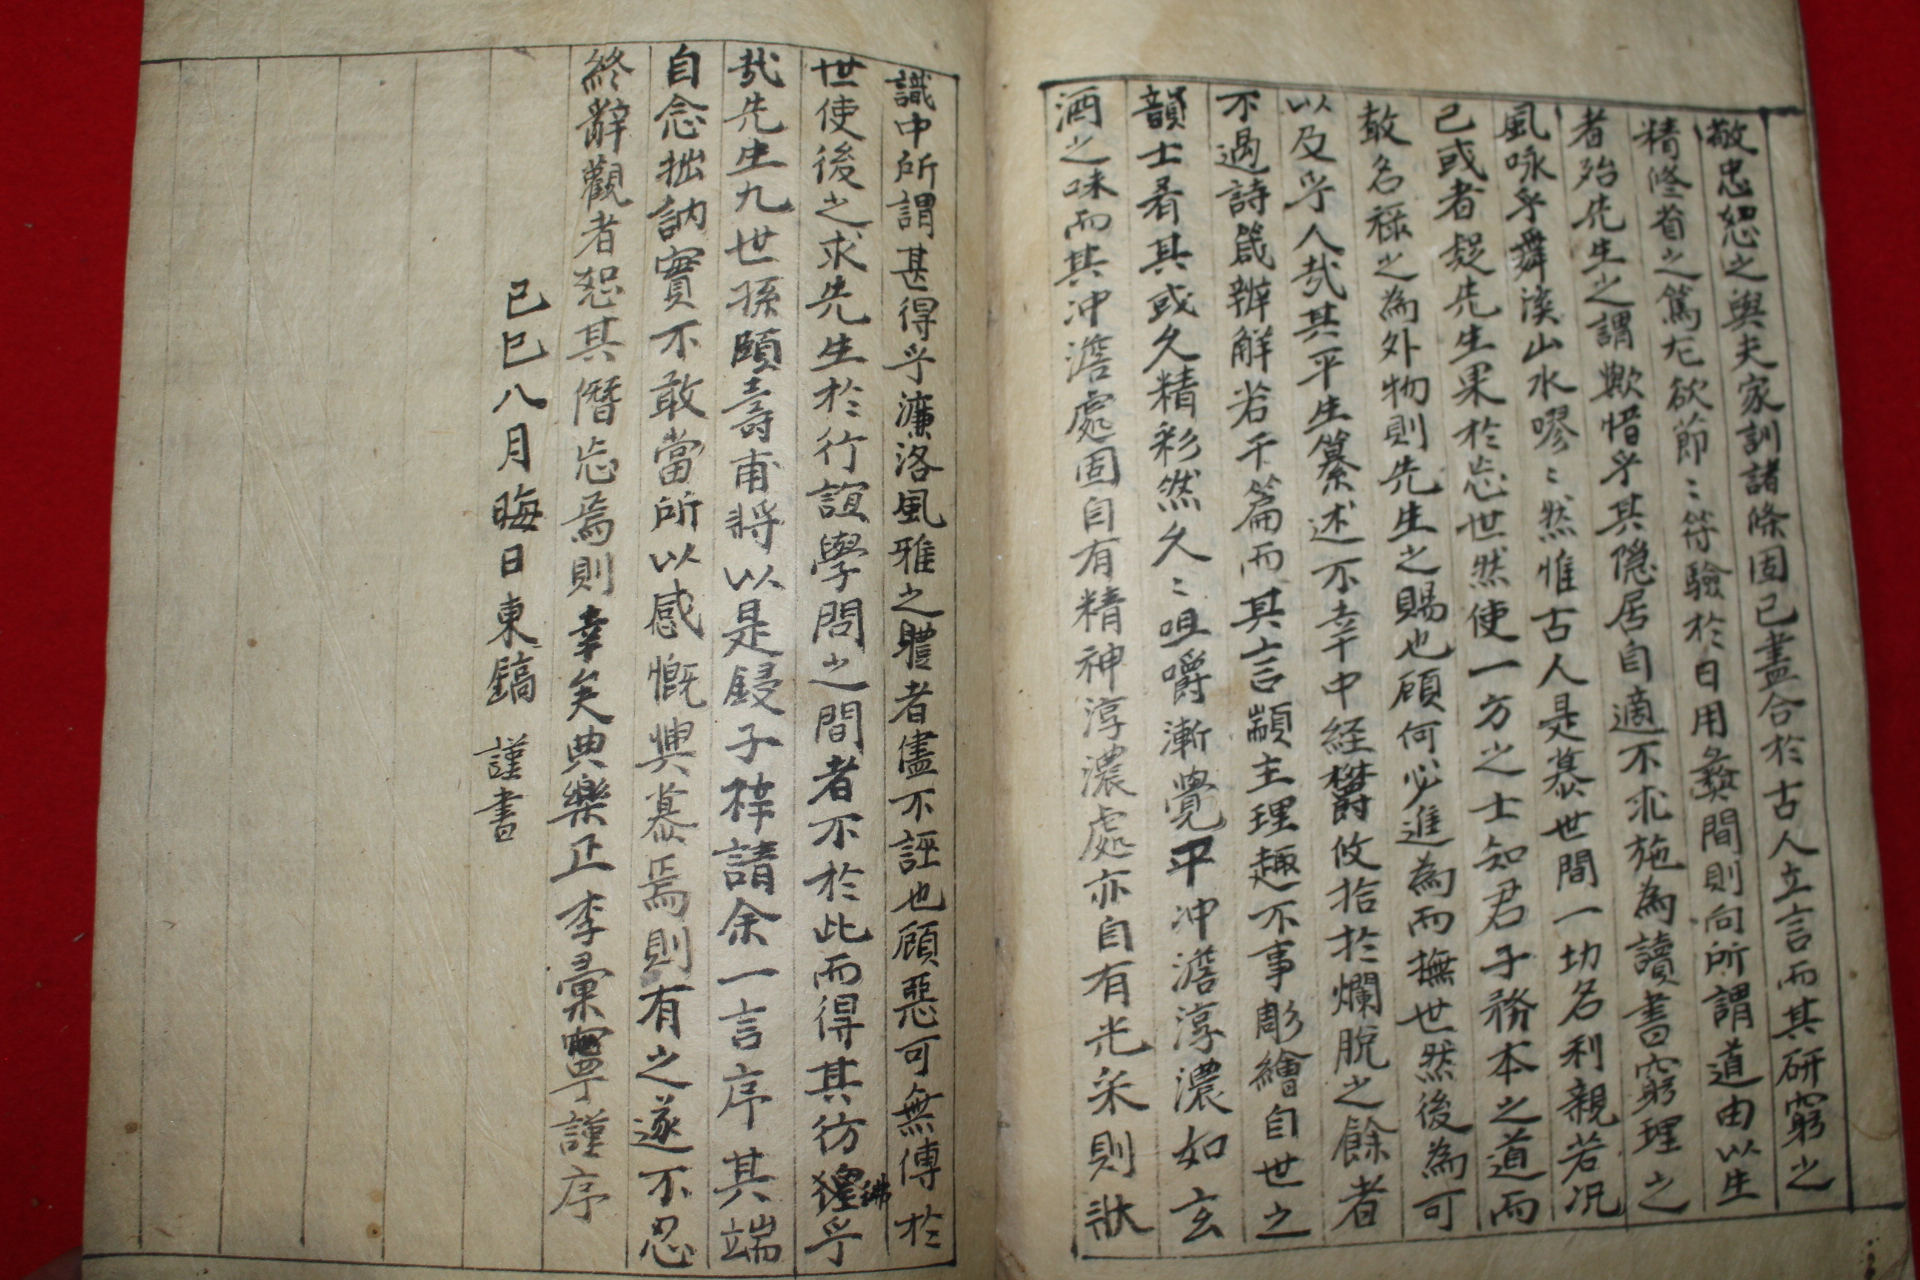 敬忠恕之與夫家訓諸條固已盡合於古人立言而其研窮之
精修省之篤尤欲節〻符驗於日用彜間則向所謂道由以生
者殆先生之謂歟惜乎其隱居自適不求施為讀書窮理之
風咏乎舞溪山水嘐〻然惟古人是慕世間一切名利親若況
已或者疑先生果於忘世然使一方之士知君子務本之道而
敢名祿之為外物則先生之賜也顧何必進為而撫世然後為可
以及乎人哉其平生纂述不幸中經欝攸拾於爛脫之餘者
不過詩箴辨解若干篇而其言顓主理趣不事彫繪自世之
韻士看其或欠精彩然久〻咀嚼漸覺平冲澹淳濃如玄
酒之味而其冲澹處固自有精神淳濃處亦自有光采則狀
識中所謂甚得乎濂洛風雅之軆者儘不誣也顧惡可無傳於
世使後之求先生於行誼學問之間者不於此而得其彷彿乎
哉先生九世孫頤壽甫將以是鋟子梓請余一言序其端
自念拙訥實不敢當所以感慨興慕焉則有之遂不忍
終辭觀者恕其僭忘焉則幸矣典樂正李彙寧謹序
己巳八月晦日東鎬 謹書